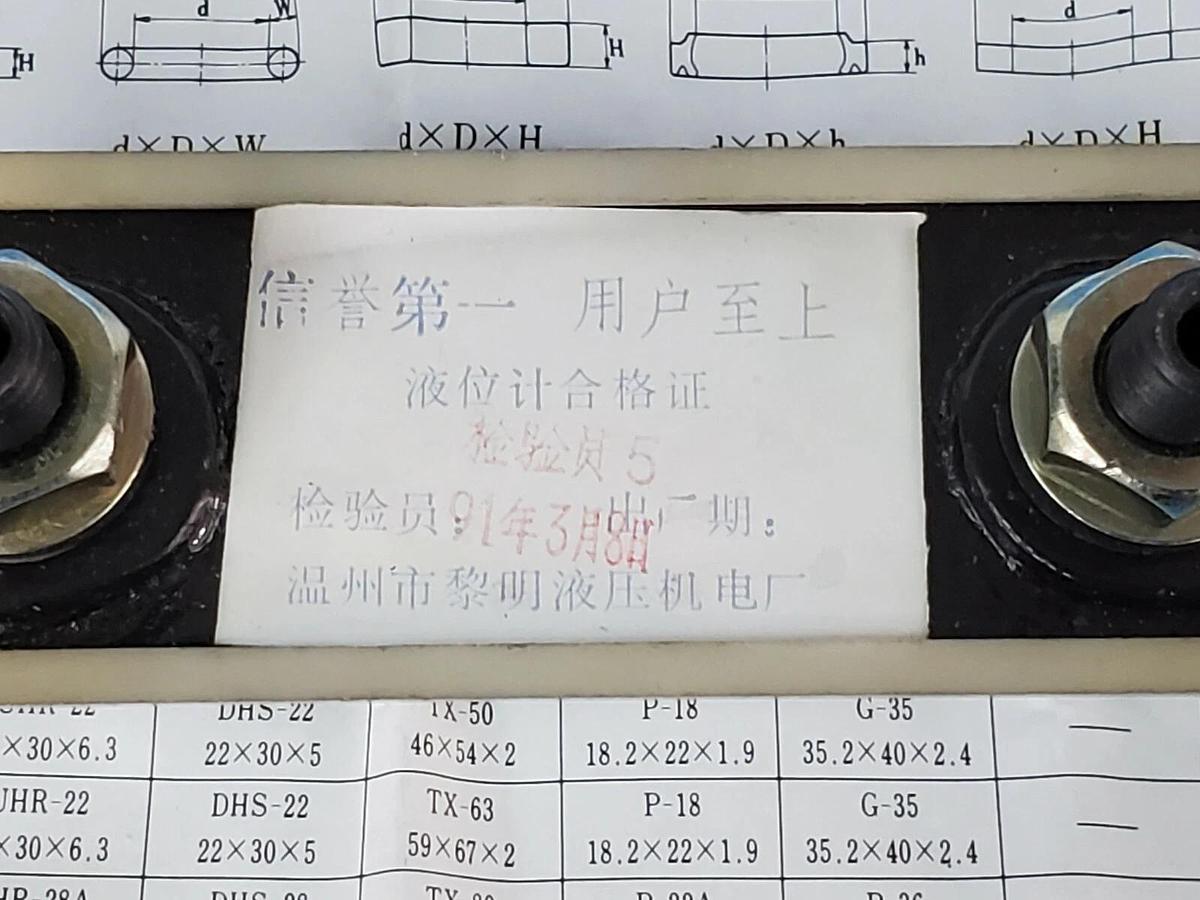 d W
H H h d
d×D×W d×D×H d×D×h d×D×H
信誉第一 用户至上
液位计合格证
检验员5
检验员: 出厂期:
91年3月8日
温州市黎明液压机电厂
DHS-22 TX-50 P-18 G-35 —
×30×6.3 22×30×5 46×54×2 18.2×22×1.9 35.2×40×2.4
UHR-22 DHS-22 TX-63 P-18 G-35 —
×30×6.3 22×30×5 59×67×2 18.2×22×1.9 35.2×40×2.4